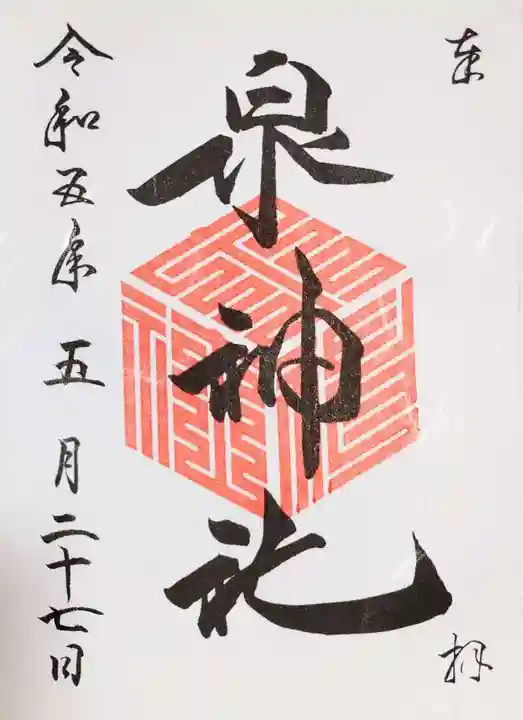 奉拝
泉神社
令和五年五月二十七日